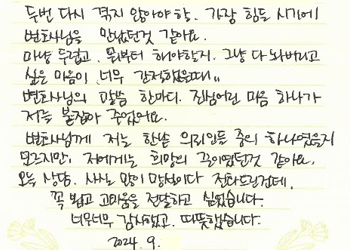 두번 다시 겪지 않아야 할. 가장 힘든 시기에
변호사님을 만났던것 같아요.
마냥 두렵고. 뭐부터 해야할지. 그냥 다 놔버리고
싶은 마음이 너무 간절했을때..
변호사님의 말씀 한마디. 진심어린 마음 하나가
저를 붙잡아 주었어요.
변호사님께 저는 한낱 의뢰인들 중의 하나였을지
모르지만, 저에게는 희망의 그이였던것 같아요.
오늘 상담. 사실 많이 망설이다 전화드렸던건데.
꼭 뵙고 고마움을 전달하고 싶었습니다.
너무너무 감사했고. 따뜻했습니다.
2024. 9.